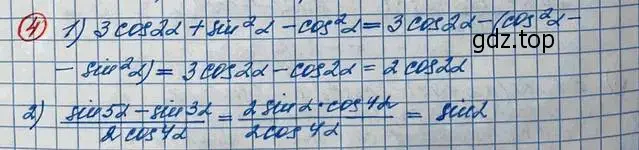 ④ 1) 3 cos2α + sin²α - cos²α = 3 cos2α - (cos²α -
- sin²α) = 3 cos2α - cos2α = 2 cos2α
gdz.top
2) (sin5α - sin3α)/(2 cos4α) = (2 sinα · cos4α)/(2cos4α) = sinα